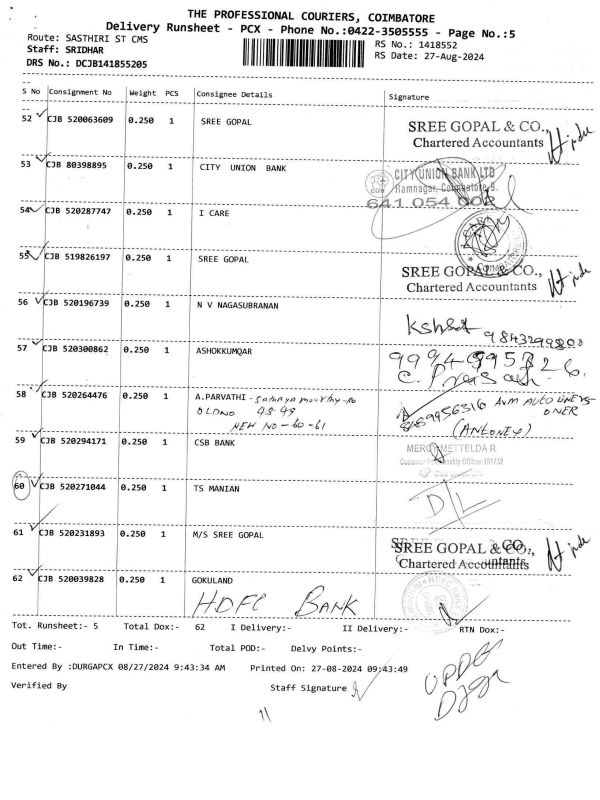 THE PROFESSIONAL COURIERS, COIMBATORE
Delivery Runsheet - PCX - Phone No.:0422-3505555 - Page No.:5
Route: SASTHIRI ST CMS
RS No.: 1418552
Staff: SRIDHAR
RS Date: 27-Aug-2024
DRS No.: DCJB141855205
S No Consignment No Weight PCS Consignee Details Signature
52 CJB 520063609 0.250 1 SREE GOPAL
SREE GOPAL & CO.,
Chartered Accountants
53 CJB 80398895 0.250 1 CITY UNION BANK
CITY UNION BANK LTD
Ramnagar, Coimbatore-9.
641 054 002
54 CJB 520287747 0.250 1 I CARE
55 CJB 519826197 0.250 1 SREE GOPAL
SREE GOPAL & CO.,
Chartered Accountants
56 CJB 520196739 0.250 1 N V NAGASUBRANAN
9843299800
57 CJB 520300862 0.250 1 ASHOKKUMQAR
58 CJB 520264476 0.250 1 A.PARVATHI
OLD NO 48-49
NEW NO-60-61
AVM AUTO
(ANTONEY)
59 CJB 520294171 0.250 1 CSB BANK
MERCY METTELDA R
60 CJB 520271044 0.250 1 TS MANIAN
D/L
61 CJB 520231893 0.250 1 M/S SREE GOPAL
SREE GOPAL & CO.,
Chartered Accountants
62 CJB 520039828 0.250 1 GOKULAND
HDFC BANK
Tot. Runsheet:- 5 Total Dox:- 62 I Delivery:- II Delivery:- RTN Dox:-
Out Time:- In Time:- Total POD:- Delvy Points:-
Entered By :DURGAPCX 08/27/2024 9:43:34 AM Printed On: 27-08-2024 09:43:49
Verified By Staff Signature